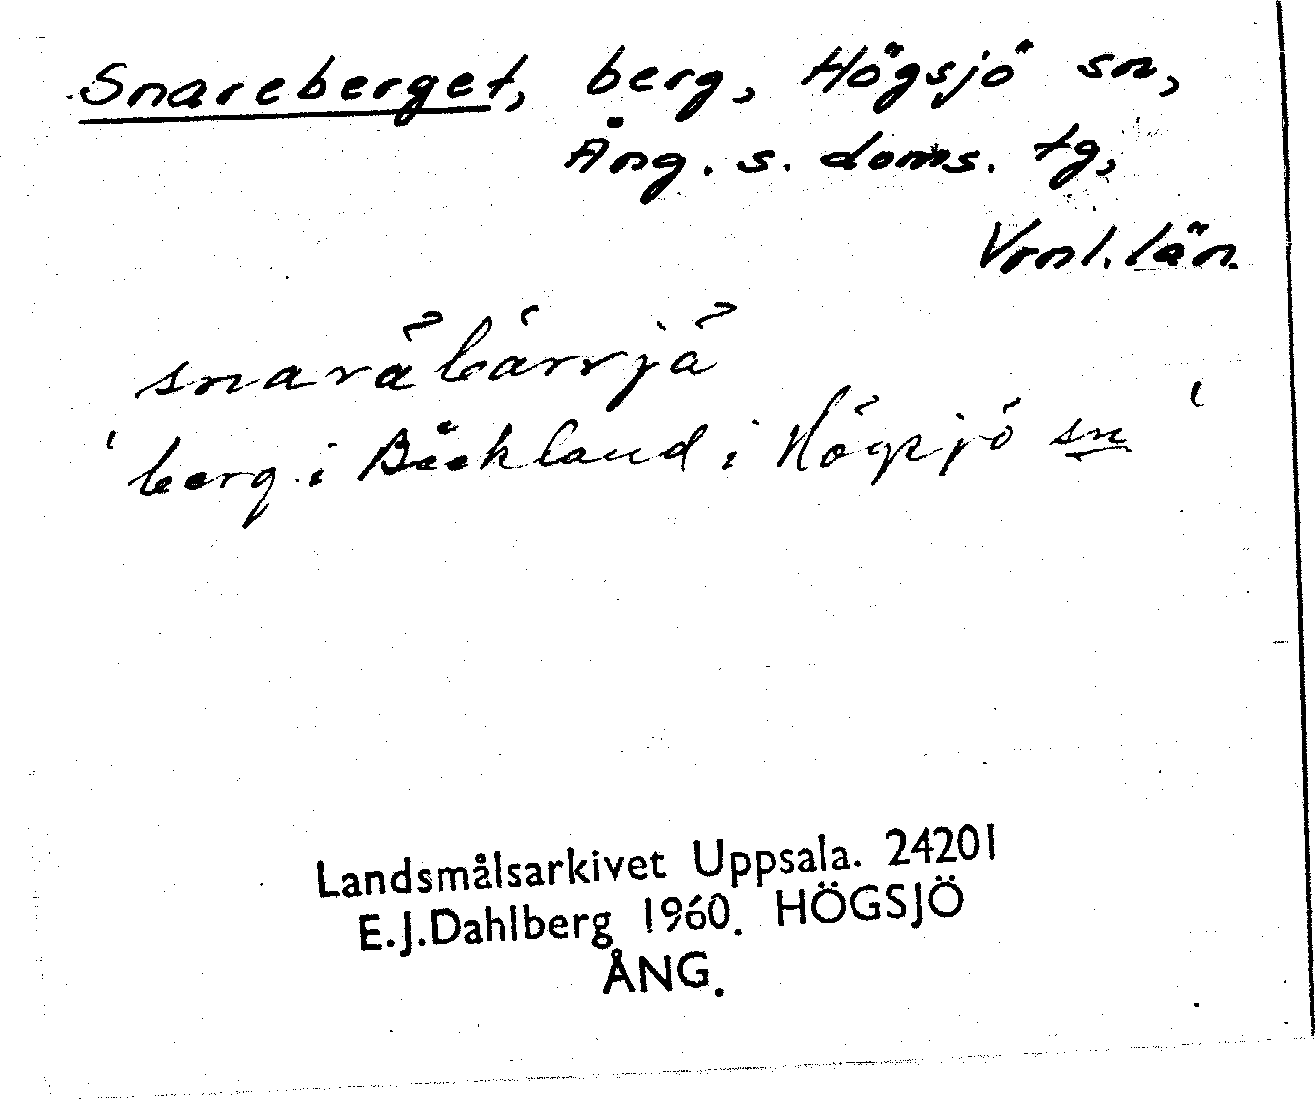 Snareberget, berg, Högsjö sn,
Ång. s. doms. tg,
Vrnl. län.
snaräbärrjä
'berg i Bäckland i Högsjö sn'
Landsmålsarkivet Uppsala. 24201
E.J.Dahlberg 1960. HÖGSJÖ
ÅNG.